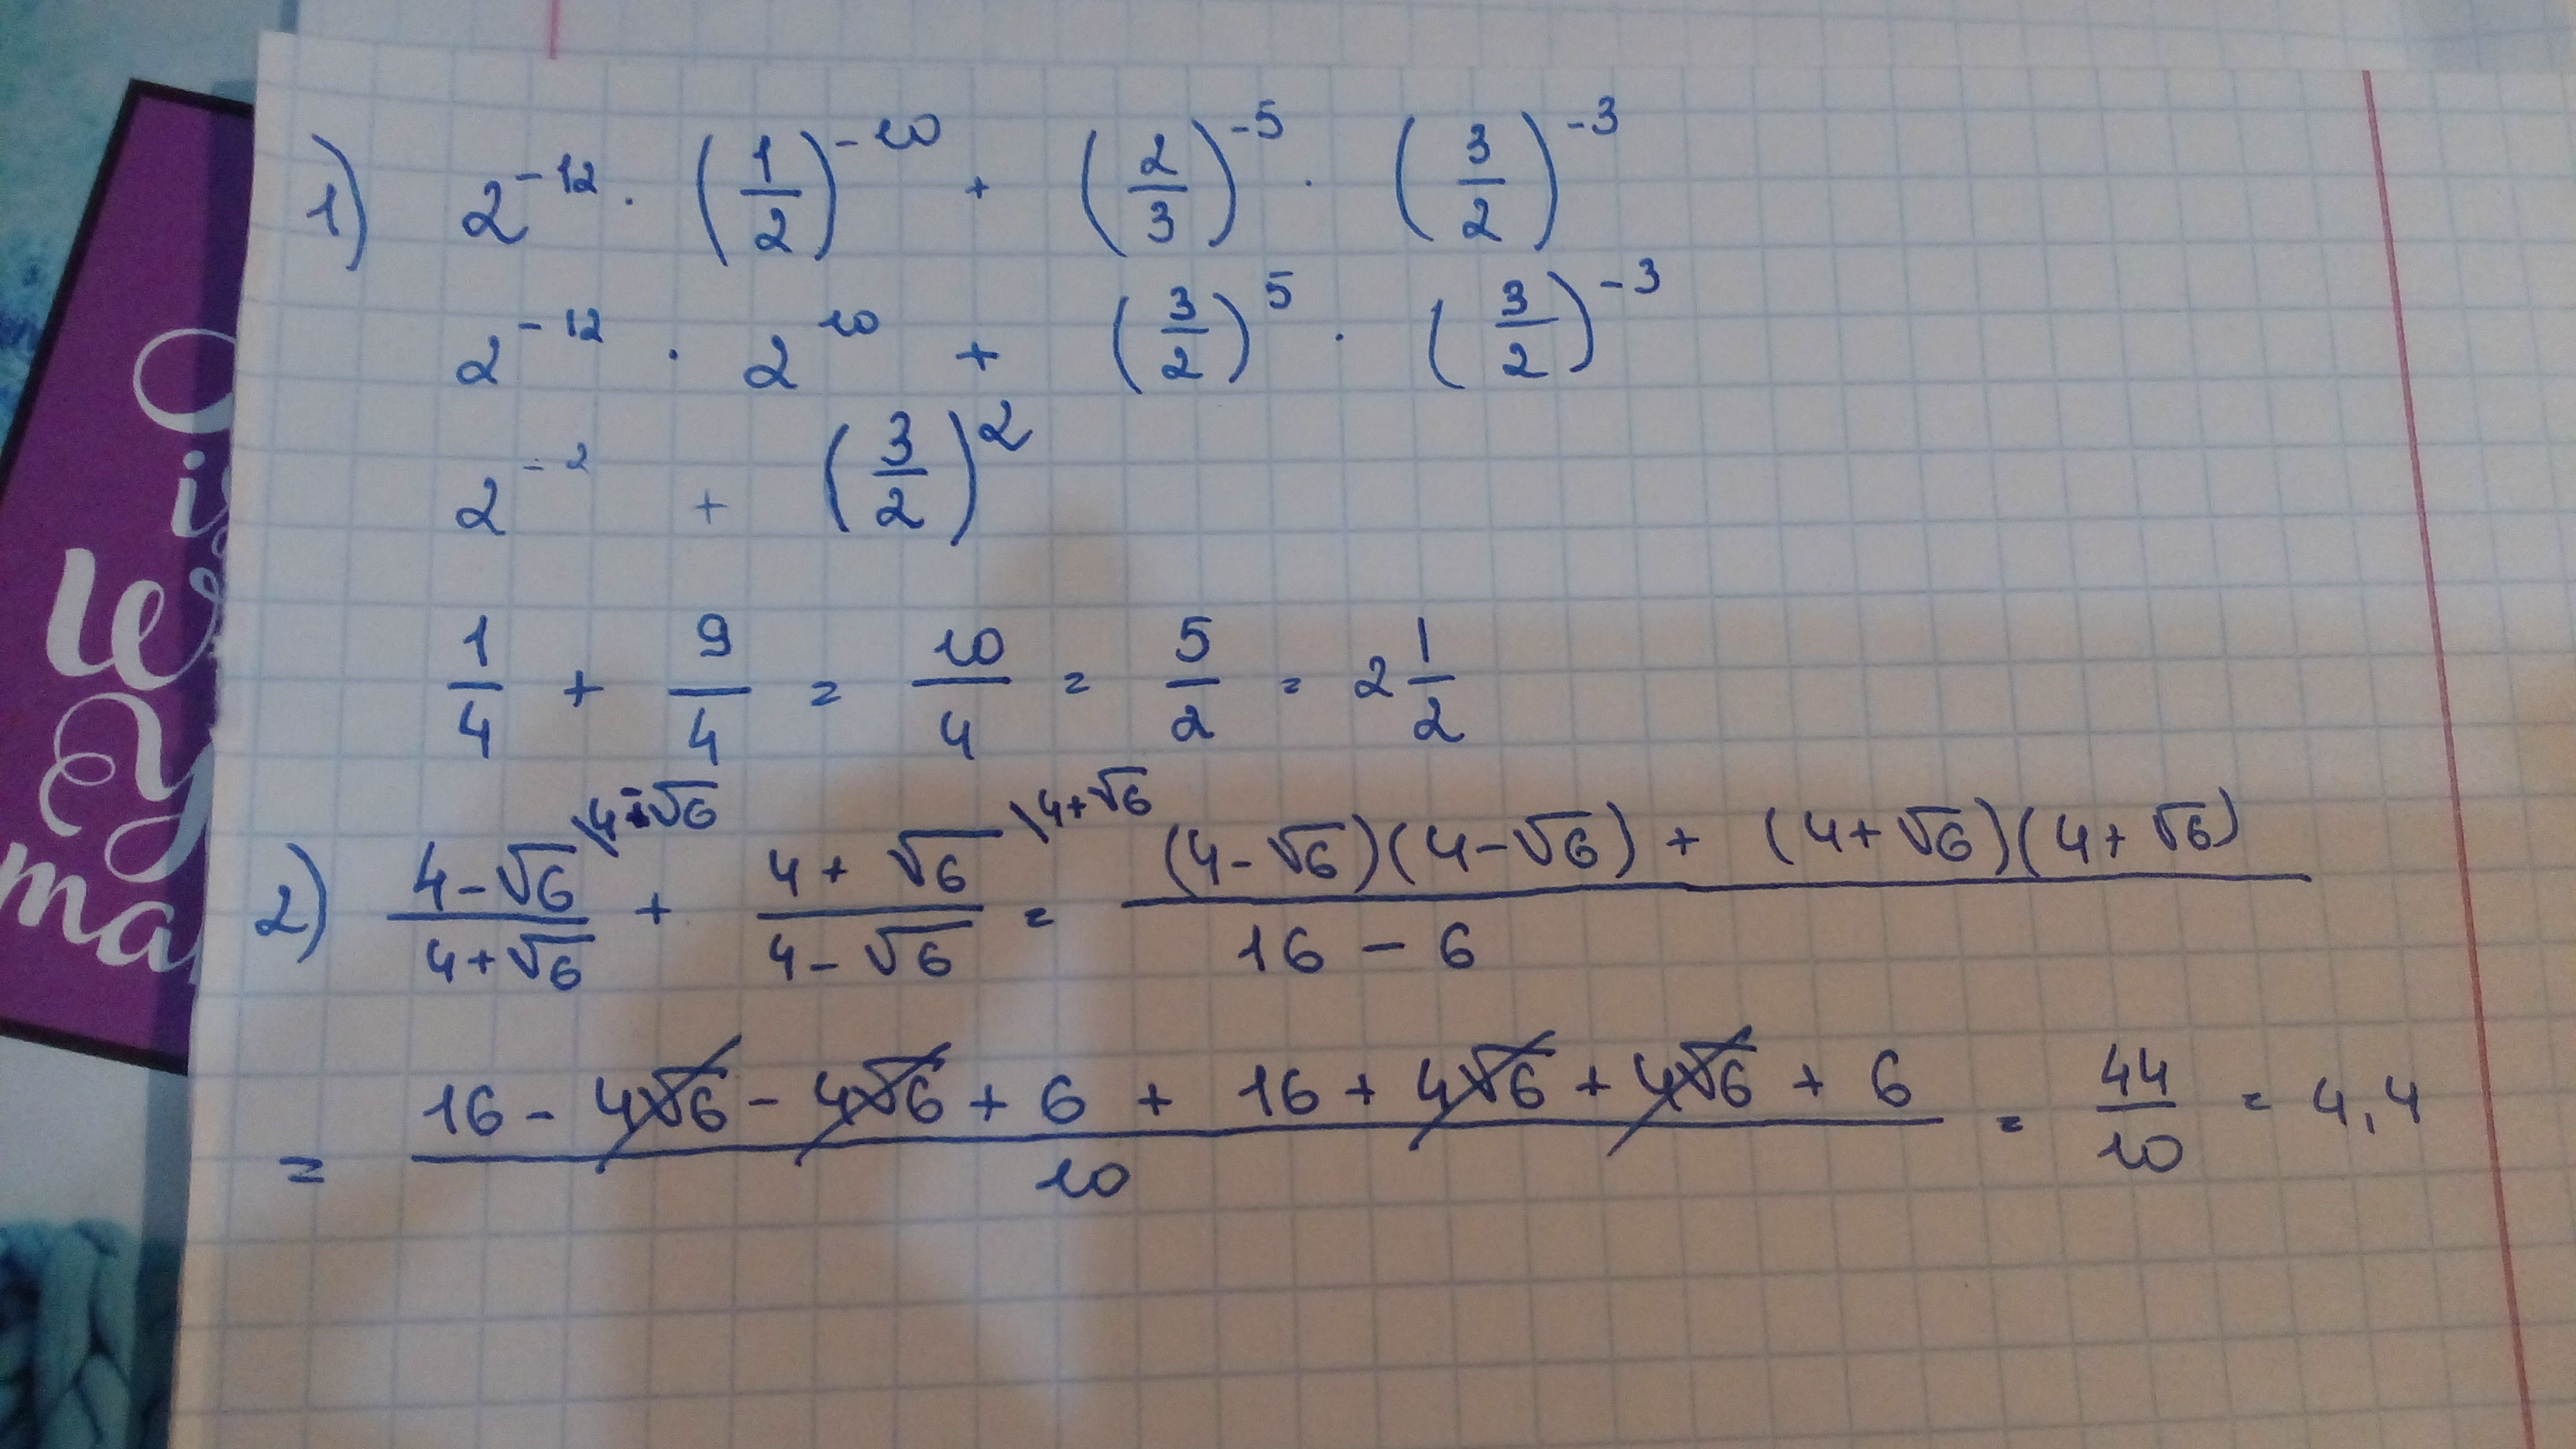 1) 2⁻¹² · (1/2)⁻¹⁰ + (2/3)⁻⁵ · (3/2)⁻³
2⁻¹² · 2¹⁰ + (3/2)⁵ · (3/2)⁻³
2⁻² + (3/2)²
1/4 + 9/4 = 10/4 = 5/2 = 2 1/2
2) (4-√6)/(4+√6) \4-√6 + (4+√6)/(4-√6) \4+√6 = ((4-√6)(4-√6) + (4+√6)(4+√6))/(16 - 6)
= (16 - 4√6 - 4√6 + 6 + 16 + 4√6 + 4√6 + 6)/10 = 44/10 = 4,4